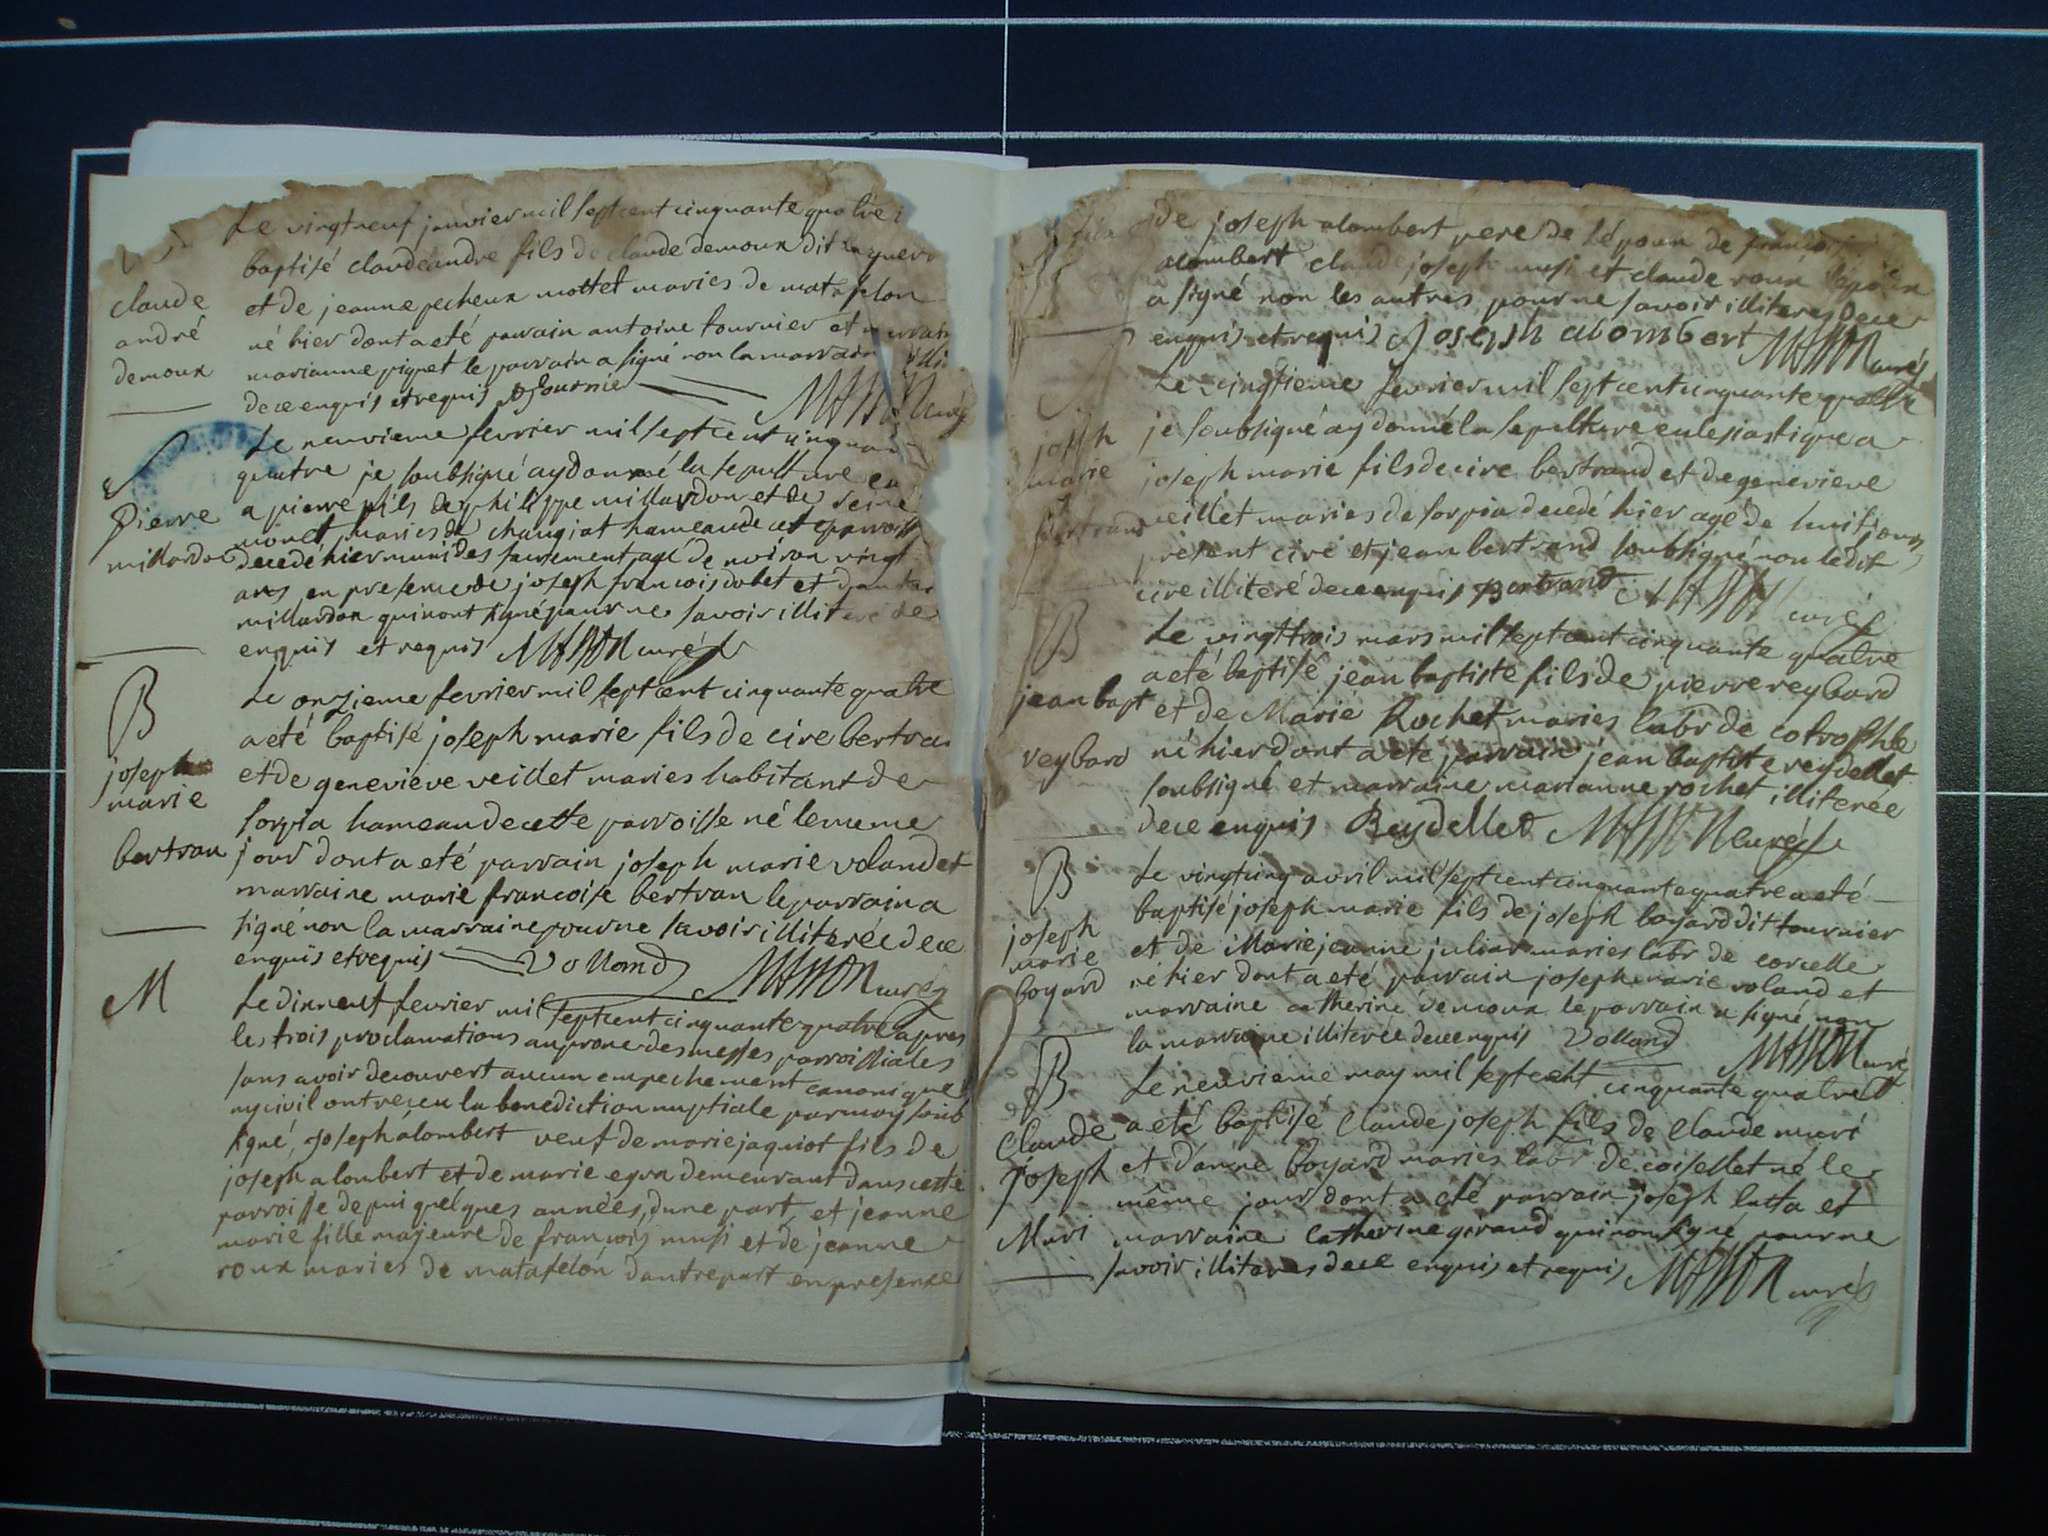 Le vingtneuf janvier mil septcent cinquante quatre
baptisé claudeandre fils de claude demoux dit
claude
et de jeanne pecheux mottet maries de matafelon
andré
né hier dont a eté parrain antoine tournier et marrain
demoux
marianne piquet le parrain a signé non la marrain
de ce enquis et requis
MASSON curé
Le neuvieme fevrier mil septcent cinquan
quatre je soubsigné ay donné la sepulture
Pierre
a pierre fils de philippe millardon et de
millardon
monet maries de changiat hameau de cet parroiss
decedé hier muni des sacrement agé de noiron vingt
ans en presence de joseph francois dobet et
millardon qui nont signé pour ne savoir illiteré de
enquis et requis MASSON curé
B
Le onzieme fevrier mil septcent cinquante quatre
a eté baptisé joseph marie fils de cire bertran
joseph
marie
et de genevieve veillet maries habitant de
sorpia hameau de cette parroisse né le meme
bertran
jour dont a eté parrain joseph marie voland et
marraine marie francoise bertran le parrain a
signé non la marraine pour ne savoir illiterée de ce
enquis et requis Volland MASSON curé
M
Le dixneuf fevrier mil septcent cinquante quatre apres
les trois proclamations au prone des messes parroissiales
sans avoir decouvert aucun empechement canonique
ny civil ont reçeu la benediction nuptiale par moy soub
signé, Joseph alombert veuf de marie jaquiot fils de
joseph alombert et de marie egra demeurant dans cette
parroisse depui quelques années, dune part et jeanne
marie fille majeure de françois musi et de jeanne
roux maries de matafélon dautrepart en presence
de joseph alombert pere de lépoux de françois
alombert claude joseph musi et claude roux
a signé non les autres pour ne savoir illiteres de ce
enquis et requis Joseph alombert MASSON curé
Le cinqtieme fevrier mil septcent cinquante quatre
je soubsigné ay donné la sepulture eclesiastique a
joseph
marie
joseph marie fils de cire bertrand et de genevieve
bertrand
veillet maries de sorpia decedé hier agé de huit jours
present ciré et jean bertrand soubsigné non ledit
cire illiteré de ce enquis Bertrand MASSON curé
B
Le vingttrois mars mil septcent cinquante quatre
a eté baptisé jean baptiste fils de pierre reybard
jean bapt
et de Marie Rochet maries labr de cotrophle
reybard
né hier dont a eté parrain jean baptiste reydellet
soubsigné et marraine marianne rochet illiterée
de ce enquis Reydellet MASSON curé
B
Le vingtcinq avril mil septcent cinquante quatre a eté
baptisé joseph marie fils de joseph boyard dit tournier
joseph
marie
boyard
et de Marie jeanne juliar maries labr de corcelle
né hier dont a eté parrain joseph marie voland et
marraine catherine demoux le parrain a signé non
la marraine illiterée de ce enquis Volland MASSON curé
B
Le neuvieme may mil septcent cinquante quatre
Claude
a eté baptisé Claude joseph fils de Claude muri
joseph
et danne boyard maries labr de coisellet né le
même jour dont a eté parrain joseph latta et
Muri
marraine Catherine giraud qui nont signé pour ne
savoir illiteres de ce enquis et requis MASSON curé